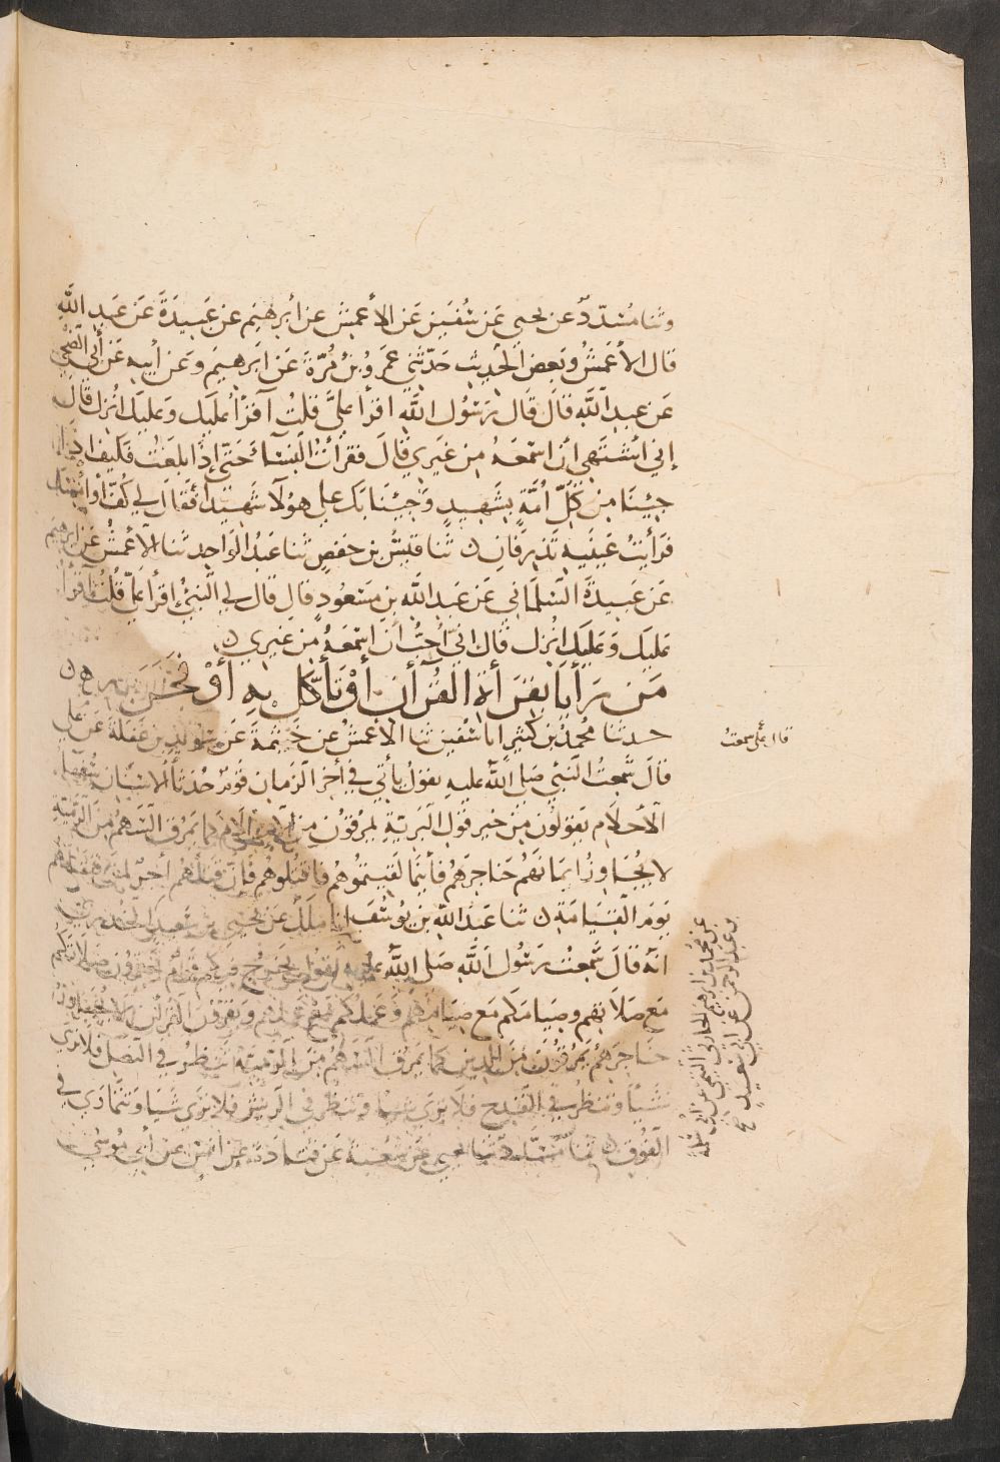 وثنا مسدد عن يحيى عن سفين عن الأعمش عن أبرهيم عن عبيدة عن عبد الله
قال الأعمش وبعض الحديث حدثني عمرو بن مرة عن ابرهيم وعن أبيه عن أبي الضحى
عن عبد الله قال قال رسول الله اقرأ علي قلت آقرأ عليك وعليك انزل قال
إني أشتهي أن اسمعه من غيري قال فقرأت النساء حتى إذا بلغت فكيف اذا
جئنا من كل أمة بشهيد وجئنا بك على هولاء شهيدا فقال لي كف أو امسك
فرأيت عينيه تذرفان ثنا قيس بن حفص ثنا عبد الواحد ثنا الأعمش عن ابرهيم
عن عبيدة السلماني عن عبد الله بن مسعود قال قال لي النبي إقرأ علي قلت آقرأ
عليك وعليك انزل قال اني أحب أن اسمعه من غيري
من رأيا بقرأة القرأن أو تأكل به أو فخر به
حدثنا محمد بن كثير انا سفين ثنا الأعمش عن خيثمة عن سويد بن غفلة عن علي
قال سمعت النبي صلى الله عليه يقول يأتي في أخر الزمان قوم حدثاء الاسنان سفهاء
الأحلام يقولون من خير قول البرية يمرقون من الإسلام كما يمرق السهم من الرمية
لا يجاوز ايمانهم حناجرهم فأينما لقيتموهم فاقتلوهم فإن قتلهم أجر لمن قتلهم
يوم القيامة ثنا عبد الله بن يوسف انا ملك عن يحيى بن سعيد الخدري
انه قال سمعت رسول الله صلى الله عليه يقول يخرج فيكم قوم تحقرون صلاتكم
مع صلاتهم وصيامكم مع صيامهم وعملكم مع عملهم ويقرؤن القرأن لا يجاوز
حناجرهم يمرقون من الدين كما يمرق السهم من الرمية تنظر في النصل فلا ترى
شيئا وتنظر في القدح فلا ترى شيئا وتنظر في الريش فلا ترى شيئا وتتمادي في
الفوق ثنا مسدد ثنا يحيى عن شعبة عن قتادة عن أنس عن أبي موسى
قال علي سمعت
عن محمد بن ابرهيم الحارث التيمي عن أبي سلمة
بن عبد الرحمن عن أبي سعيد صح